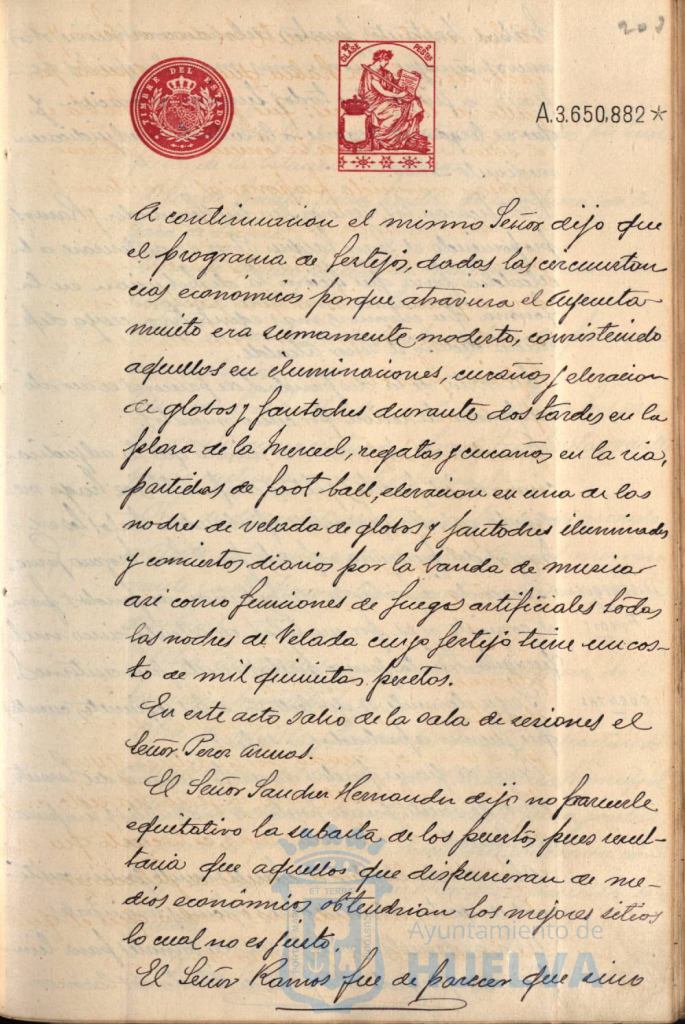 203
TIMBRE DEL ESTADO
1ª CLASE 2 PESTAS
A.3.650,882*
A continuacion el mismo Señor dijo que
el programa de festejos, dadas las circunstan
cias económicas porque atraviesa el Ayunta-
miento era sumamente modesto, consistiendo
aquellos en iluminaciones, cucañas y elevacion
de globos y fantoches durante dos tardes en la
plaza de la Merced, regatas y cucañas en la ria,
partidos de foot ball, elevacion en una de las
noches de velada de globos y fantoches iluminados
y conciertos diarios por la banda de musica
asi como funciones de fuegos artificiales todas
las noches de Velada cuyo festejo tiene un cos-
to de mil quinientas pesetas.
En este acto salio de la sala de sesiones el
Señor Perez Armas.
El Señor Sanchez Hernandez dijo no parecerle
equitativo la subasta de los puestos pues resul-
taria que aquellos que dispusieran de me-
dios económicos obtendrian los mejores sitios
lo cual no es justo.
El Señor Ramos fue de parecer que sino
Ayuntamiento de
HUELVA